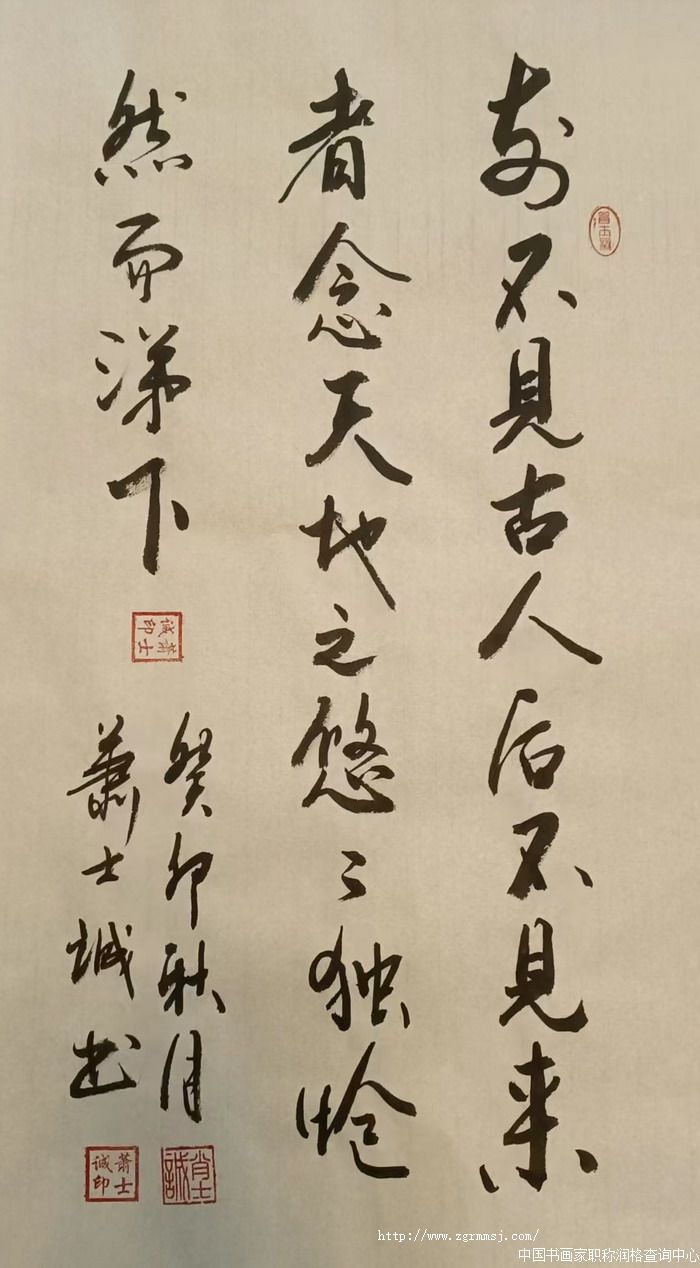 前不见古人后不见来
者念天地之悠〻独怆
然而涕下
癸卯秋月
萧士诚书
萧士诚印
萧士诚印
肖士誠
http://www.zgrmmsj.com/
中国书画家职称润格查询中心